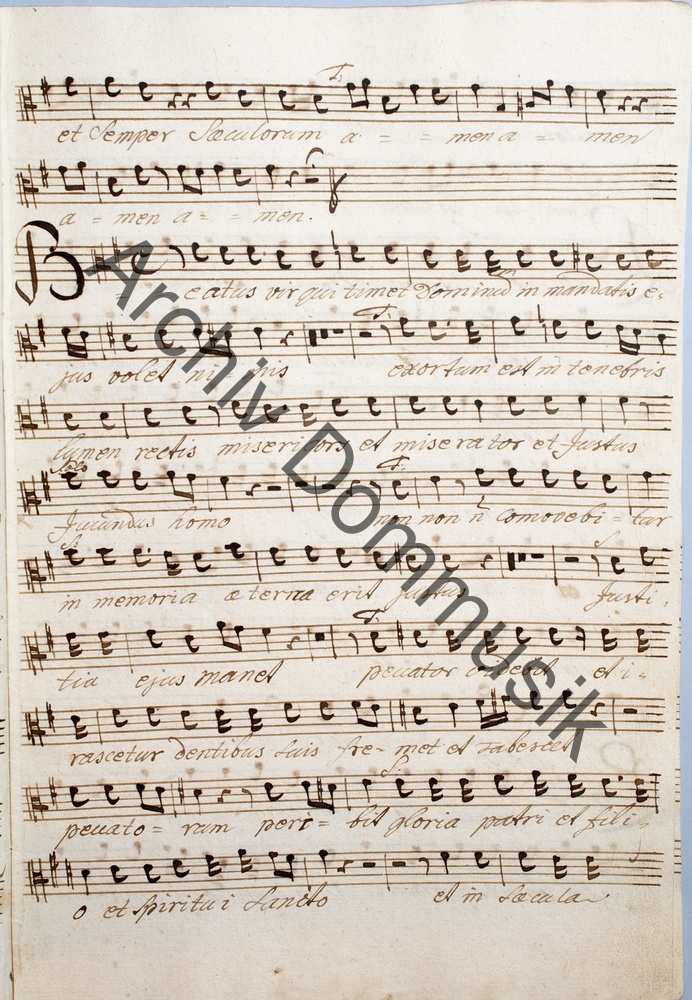 T:
et Semper Sæculorum a = = men a = men
a = men a = = men.
Beatus vir qui timet Dominũ in mandatis e=
T.
jus volet nimis exortum est in tenebris
lumen rectis misericors et miserator et Justus
Solo T.
Jucundus homo non non n̄ Comovebi = tur
S: S.
in memoria æterna erit Justus Justi=
T.
tia ejus manet peccator videbit et i=
rascetur dentibus suis fre= met et tabescet
S.
peccato= rum peri= bit gloria patri et fili=
o et Spiritui Sancto et in Sæcula
Archiv Dommusik